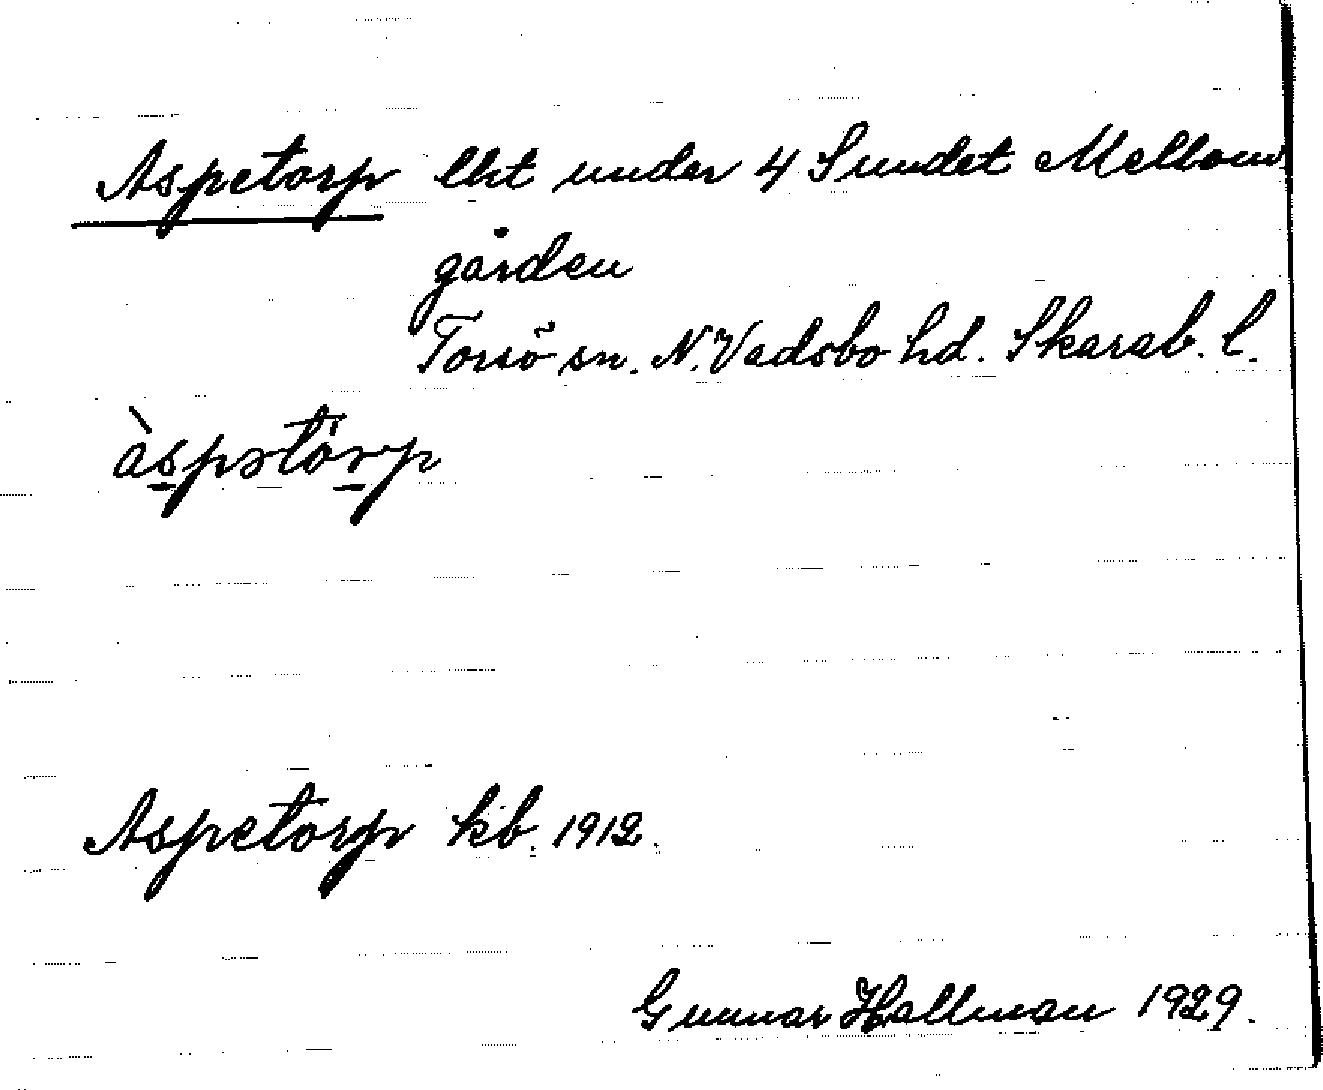 Aspetorp lht under 4 Sundet Mellom
gården
Torsö sn. N. Vadsbo hd. Skarab. l.
àspətörp
Aspetorp kb. 1912.
Gunnar Hallman 1929.